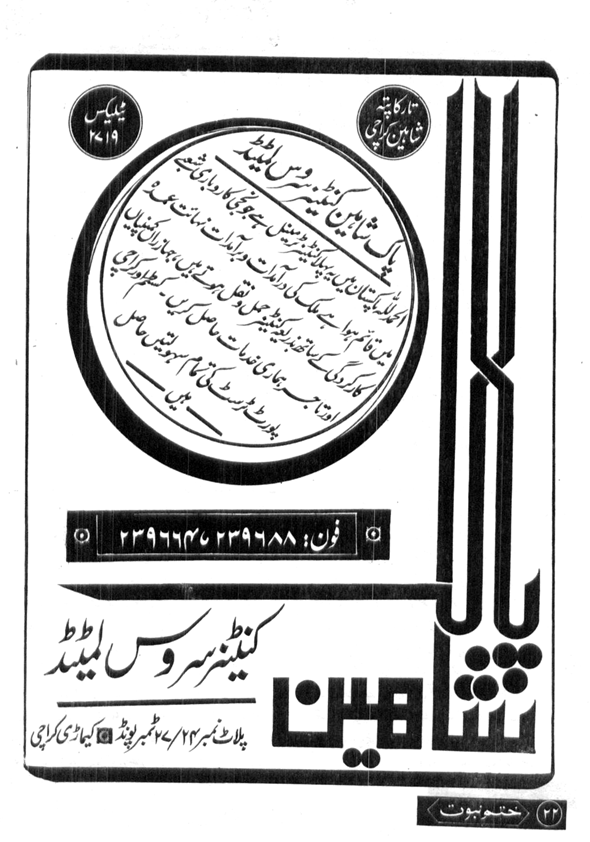 تار کا پتہ
شاہین کراچی
ٹیلیکس
۲۷۱۹
پاک شاہین کنٹینر سروس لمیٹڈ
الحمدللہ پاکستان میں یہ پہلا کنٹینر ٹرمینل ہے جو نجی کاروباری شعبے
میں قائم ہوا ہے ملک کی درآمدات و برآمدات نہایت عمدہ
کارکردگی کے ساتھ بذریعہ کنٹینر حمل و نقل ہوتے ہیں، جہازراں کمپنیاں
اور تاجر ہماری خدمات حاصل کریں۔ کسٹم اور کراچی
پورٹ ٹرسٹ کی تمام سہولتیں حاصل
ہیں
فون: ۲۳۹۶۸۸، ۲۳۹۶۶۴
پاک
شاھین
کنٹینر سروس لمیٹڈ
پلاٹ نمبر ۲۷/۲۴ ٹمبر پونڈ کیماڑی کراچی
۲۲ ختم نبوت